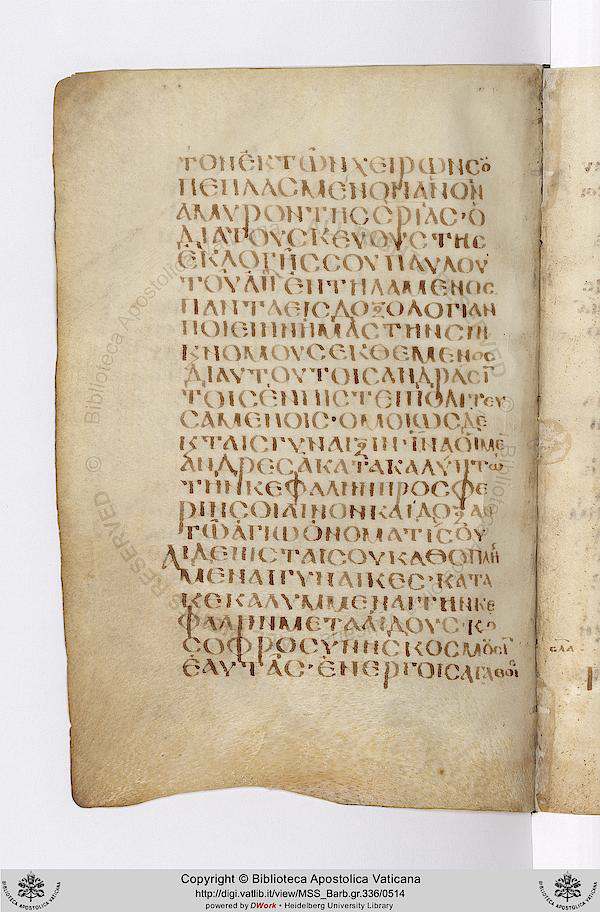 ΤΟΝ ΕΚ ΤΩΝ ΧΕΙΡΩΝ ΣΟΥ
ΠΕΠΛΑΣΜΕΝΟΝ ΑΝΟΝ
ΔΙΑ ΤΟΥ ΣΚΕΥΟΥΣ ΤΗΣ
ΕΚΛΟΓΗΣ ΣΟΥ ΠΑΥΛΟΥ
ΤΟΥ ΑΠ ΕΝΤΗΛΑΜΕΝΟΣ
ΠΑΝΤΑ ΕΙΣ ΔΟΞΟΛΟΓΙΑΝ
ΠΟΙΕΙΝ ΗΜΑΣ ΤΗΝ ΣΗΝ
Κ ΝΟΜΟΥΣ ΕΚΘΕΜΕΝΟΣ
ΔΙ ΑΥΤΟΥ ΤΟΙΣ ΑΝΔΡΑΣΙ
ΤΟΙΣ ΕΝ ΠΙΣΤΕΙ ΠΟΛΙΤΕΥ
ΣΑΜΕΝΟΙΣ· ΟΜΟΙΩΣ ΔΕ
Κ ΤΑΙΣ ΓΥΝΑΙΞΙΝ· ΙΝΑ ΟΙ ΜΕ
ΑΝΔΡΕΣ ΑΚΑΤΑΚΑΛΥΠΤΩ
ΤΗΝ ΚΕΦΑΛΗΝ ΠΡΟΣΦΕ
ΡΙΝΣΟΙ ΑΙΝΟΝ ΚΑΙ ΔΟΞΑ
ΤΩ ΑΓΙΩ ΟΝΟΜΑΤΙ ΣΟΥ
ΑΙ ΔΕ ΠΙΣΤΑΙ ΣΟΥ ΚΑΘΟΠΛΗ
ΜΕΝΑΙ ΓΥΝΑΙΚΕΣ· ΚΑΤΑ
ΚΕΚΑΛΥΜΜΕΝΑΙ ΤΗΝ ΚΕ
ΦΑΛΗΝ ΜΕΤΑ ΑΙΔΟΥΣ Κ
ΣΟΦΡΟΣΥΝΗΣ ΚΟΣΜΟΣΙ
ΕΑΥΤΑΣ· ΕΝ ΕΡΓΟΙΣ ΑΓΑΘΟΙ
© Biblioteca Apostolica Vaticana
Copyright © Biblioteca Apostolica Vaticana
http://digi.vatlib.it/view/MSS_Barb.gr.336/0514
powered by DWork • Heidelberg University Library